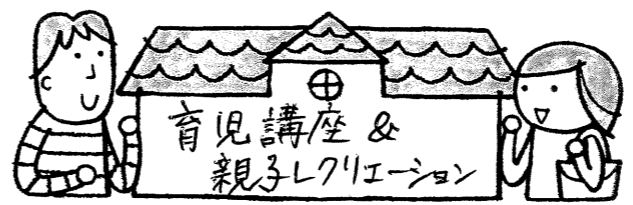 育児講座&
親子レクリエーション